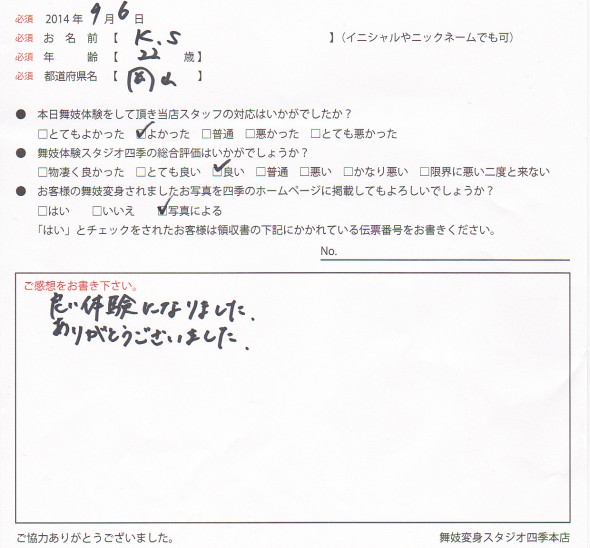 必須 2014年 9月 6日
必須 お名前【 K.S 】(イニシャルやニックネームでも可)
必須 年齢【 22 歳】
必須 都道府県名【 岡山 】
● 本日舞妓体験をして頂き当店スタッフの対応はいかがでしたか?
□とてもよかった ☑よかった □普通 □悪かった □とても悪かった
● 舞妓体験スタジオ四季の総合評価はいかがでしょうか?
□物凄く良かった □とても良い ☑良い □普通 □悪い □かなり悪い □限界に悪い二度と来ない
● お客様の舞妓変身されましたお写真を四季のホームページに掲載してもよろしいでしょうか?
□はい □いいえ ☑写真による
「はい」とチェックをされたお客様は領収書の下記にかかれている伝票番号をお書きください。
No.
ご感想をお書き下さい。
良い体験になりました.
ありがとうございました.
ご協力ありがとうございました。 舞妓変身スタジオ四季本店